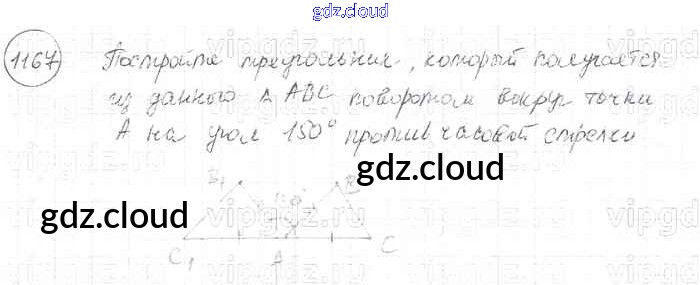 gdz.cloud
1167 Постройте треугольник, который получается
из данного △ ABC поворотом вокруг точки
A на угол 150° против часовой стрелки
gdz.cloud
gdz.cloud
B₁ B
C₁ A C